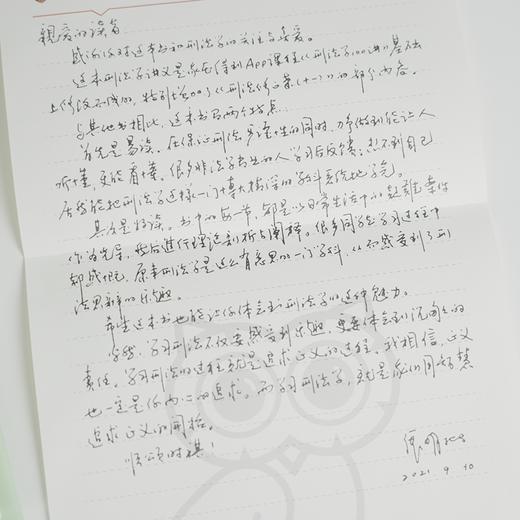 親爱的读者
感谢你对这本书和刑法学的关注与喜爱。
这本刑法学讲义是我在得到App课程《刑法学100讲》基础
上修改而成的，特别增加了《刑法修正案（十一）》的部分内容。
与其他书相比，这本书有两个特点：
首先是易读。在保证刑法严谨性的同时，力争做到能让人
听懂，更能看懂。很多非法学专业的人学习后反馈：想不到自己
居然能把刑法学这样一门博大精深的学科系统地学完。
其次是好读。书中的每一节，都是以日常生活中的疑难案件
作为先导，然后进行理论剖析与阐释。很多同学在学习过程中
都感慨，原来刑法学是这么有意思的一门学科，从而感受到了刑
法思辨的乐趣。
希望这本书也能让你体会到刑法学的这种魅力。
当然，学习刑法不仅要感受到乐趣，更要体会到沉甸甸的
责任。学习刑法的过程就是追求正义的过程。我相信，正义
也一定是你内心的追求。而学习刑法学，就是我们用智慧
追求正义的开始。
顺颂时祺！
2021 9 10